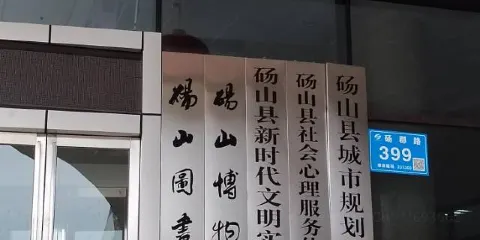 砀山圖書
砀山博物
砀山县新时代文明实
砀山县社会心理服务
砀山县城市规划
砀郡路
399